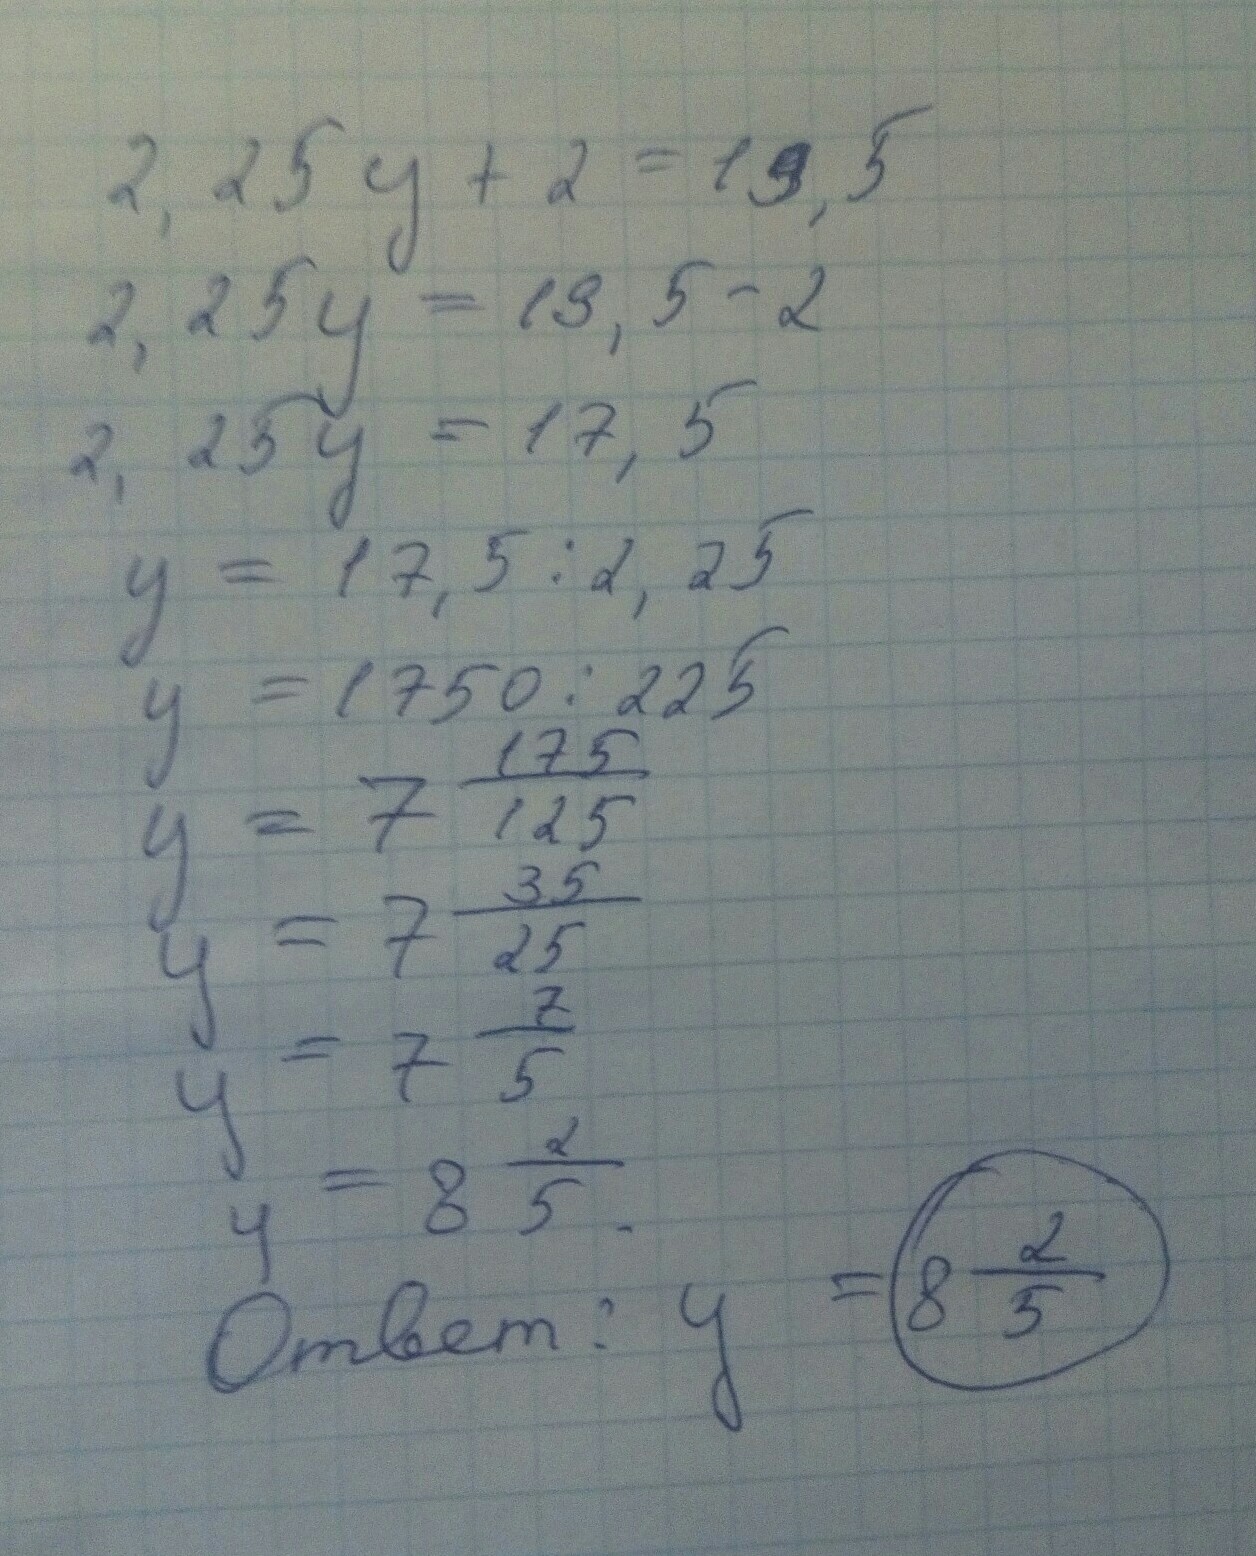 2,25y + 2 = 19,5
2,25y = 19,5 - 2
2,25y = 17,5
y = 17,5 : 2,25
y = 1750 : 225
y = 7 175/125
y = 7 35/25
y = 7 7/5
y = 8 2/5.
Ответ: y = 8 2/5